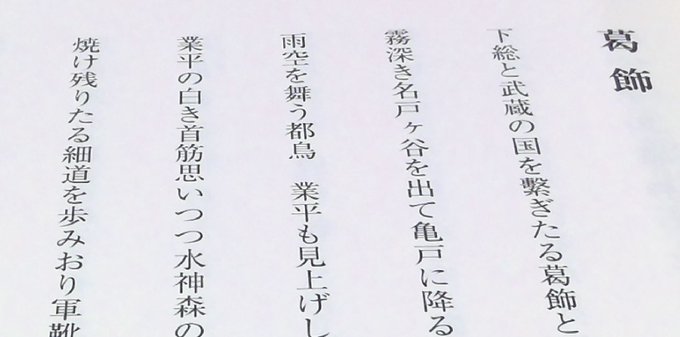 葛飾
下総と武蔵の国を繋ぎたる葛飾と
霧深き名戸ヶ谷を出て亀戸に降る
雨空を舞う都鳥　業平も見上げし
業平の白き首筋思いつつ水神森の
焼け残りたる細道を歩みおり軍靴